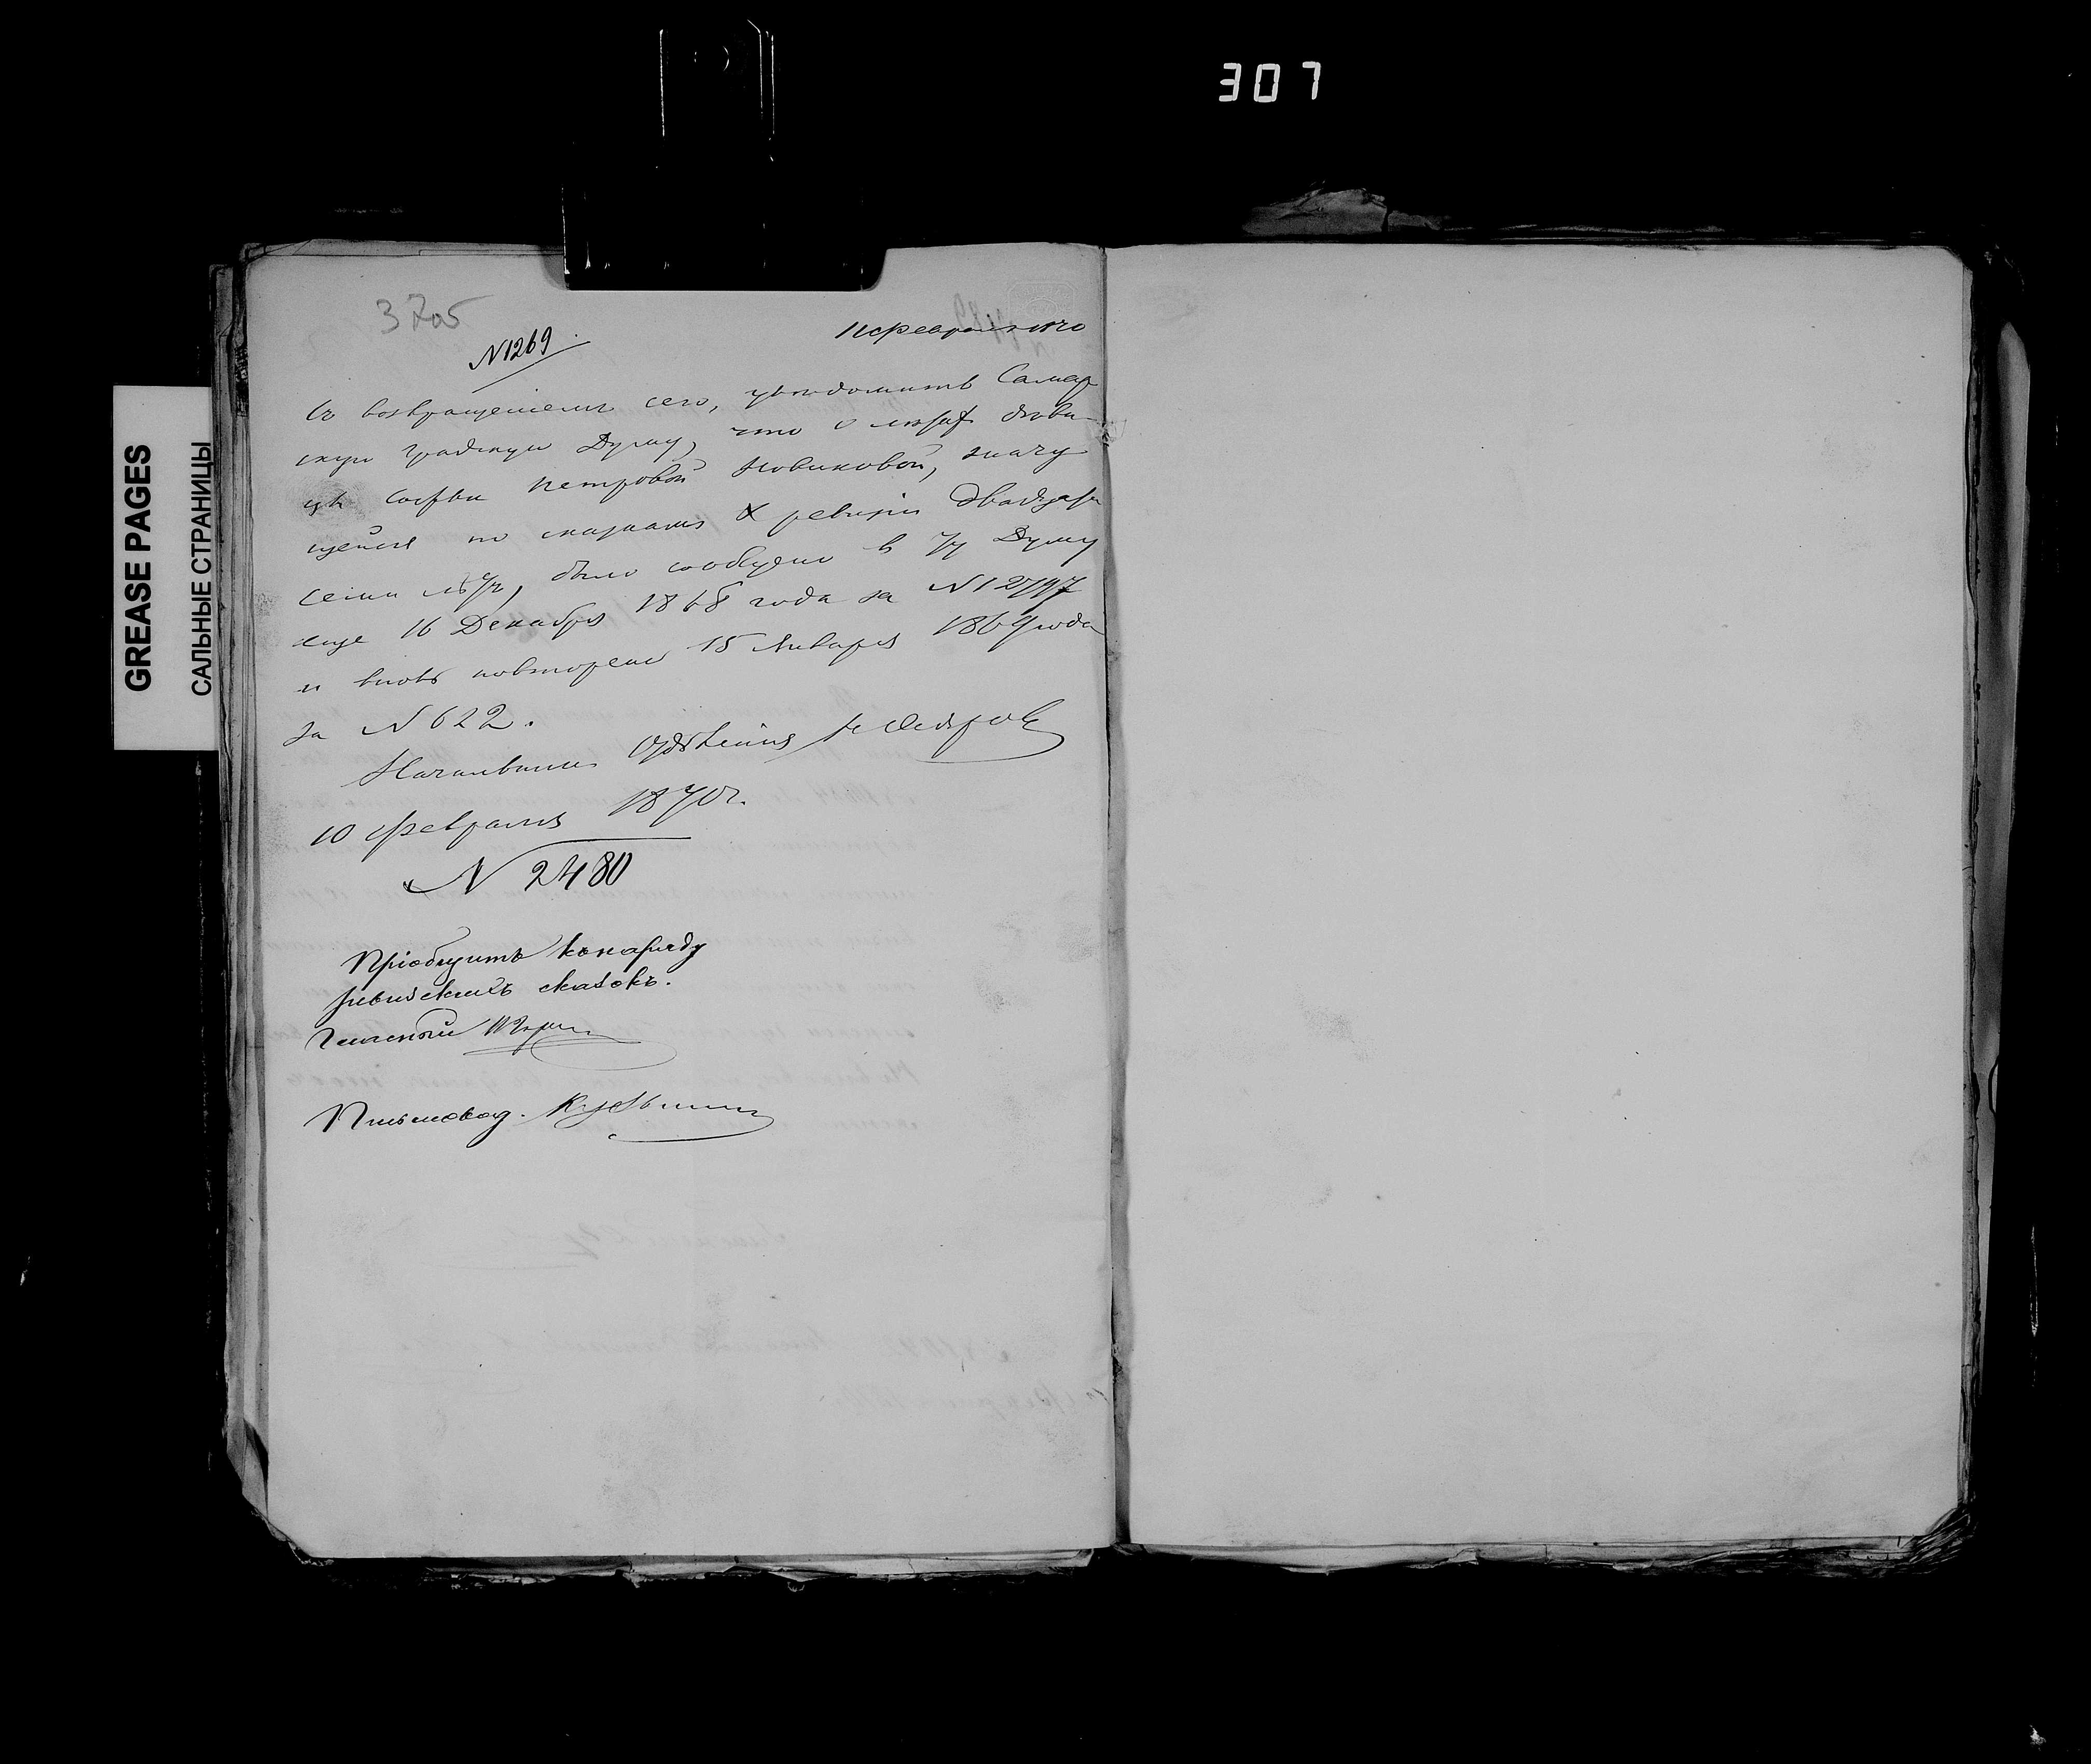 307
GREASE PAGES
САЛЬНЫЕ СТРАНИЦЫ
37об
N 1269
11 февраля 1870
Съ возвращеніемъ сего, увѣдомить Самар
скую Градскую Думу, что о лѣтахъ дѣви
цы Софьи Петровой Новиковой, значу
щейся по сказкамъ X ревизіи двадцати
семи лѣтъ, было сообщено в ту Думу
еще 16 Декабря 1868 года за N 12797
и вновь повторено 15 Января 1869 года
за N 622.
Начальникъ Отдѣленія
10 Февраля 1870 г.
N 2480
Пріобщить къ наряду
ревизскихъ сказокъ.
Гласный
Письмовод.